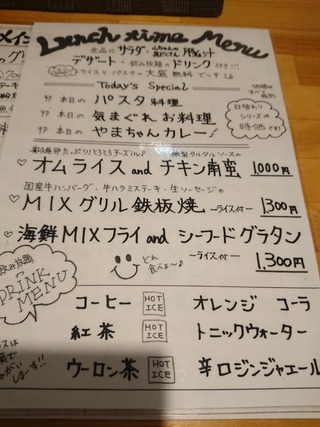 Lunch time Menu
全品に サラダ・山ちゃんの具だくさん 豚汁
デザート・飲み放題のドリンク付き!!!
ライスとパスタの大盛 無料でーす
Today's Special
本日の パスタ 料理
本日の 気まぐれ お料理
本日の やまちゃん カレー♪
日替わりシリーズは時価です!
オムライス and チキン南蛮 1000円
国産牛ハンバーグ・牛ハラミステーキ・生ソーセージの
♡ MIX グリル 鉄板焼 ーライス付ー 1300円
♡ 海鮮MIXフライ and シーフードグラタン
ーライス付ー 1,300円
どれ食べよ〜♪
飲み放題
DRINK MENU
コーヒー HOT ICE オレンジ コーラ
紅茶 HOT ICE トニックウォーター
ウーロン茶 HOT ICE 辛口ジンジャエール